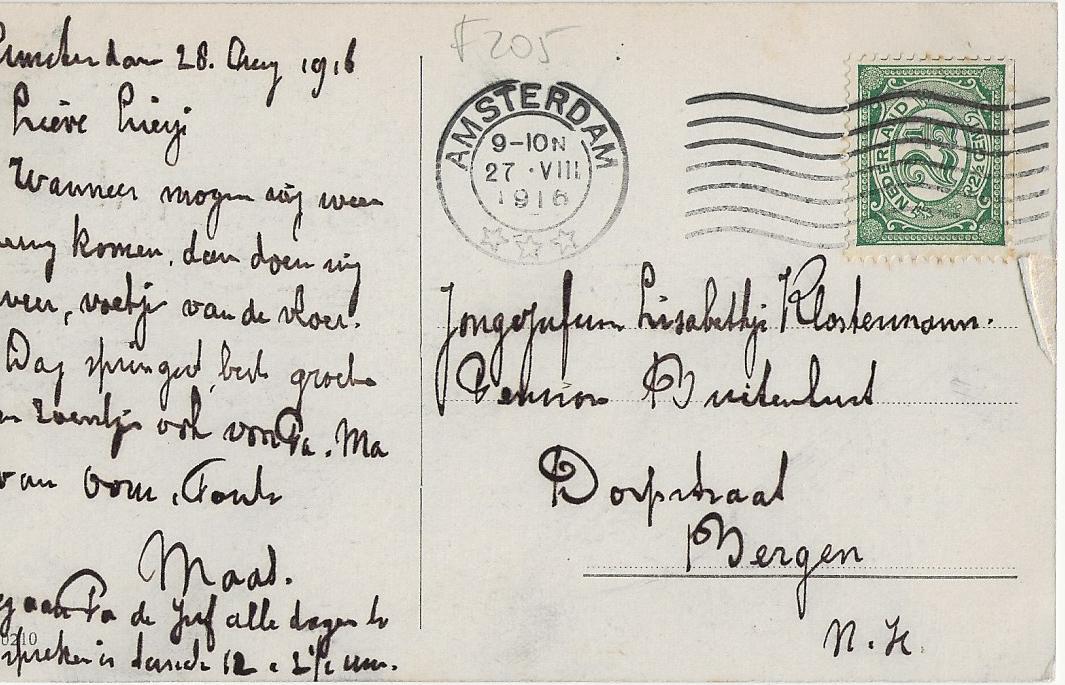 Amsterdam 28. Aug 1916
Lieve Liesji
Wanneer mogen wij weer
komen, dan doen wij
weer, voetje van de vloer.
Dag springert, beste groete
en zoentje ook voor Pa. Ma
van Oom, Tante
Maad.
aan Pa de Juf alle dagen te
spreken is tusschen 12 - 2½ uur.
0210
F205
AMSTERDAM
9-10N
27 · VIII
1916
NEDERLAND
2½
2½ CENT
Jongejufvrouw Lisabethje Klostermann.
Pension Buitenlust
Dorpstraat
Bergen
N. H.